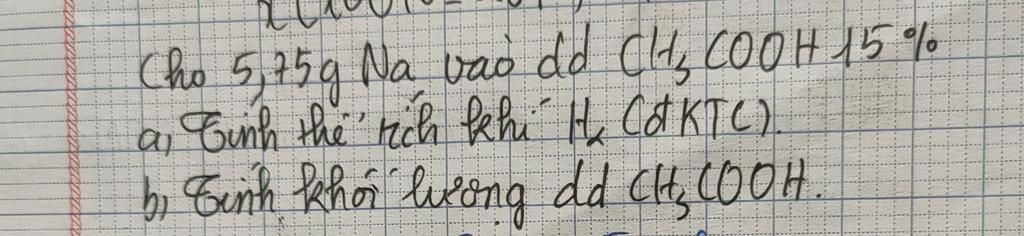 Cho 5,75g Na vào dd CH₃COOH 15%
a, Tính thể tích khí H₂ (đKTC).
b, Tính khối lượng dd CH₃COOH.